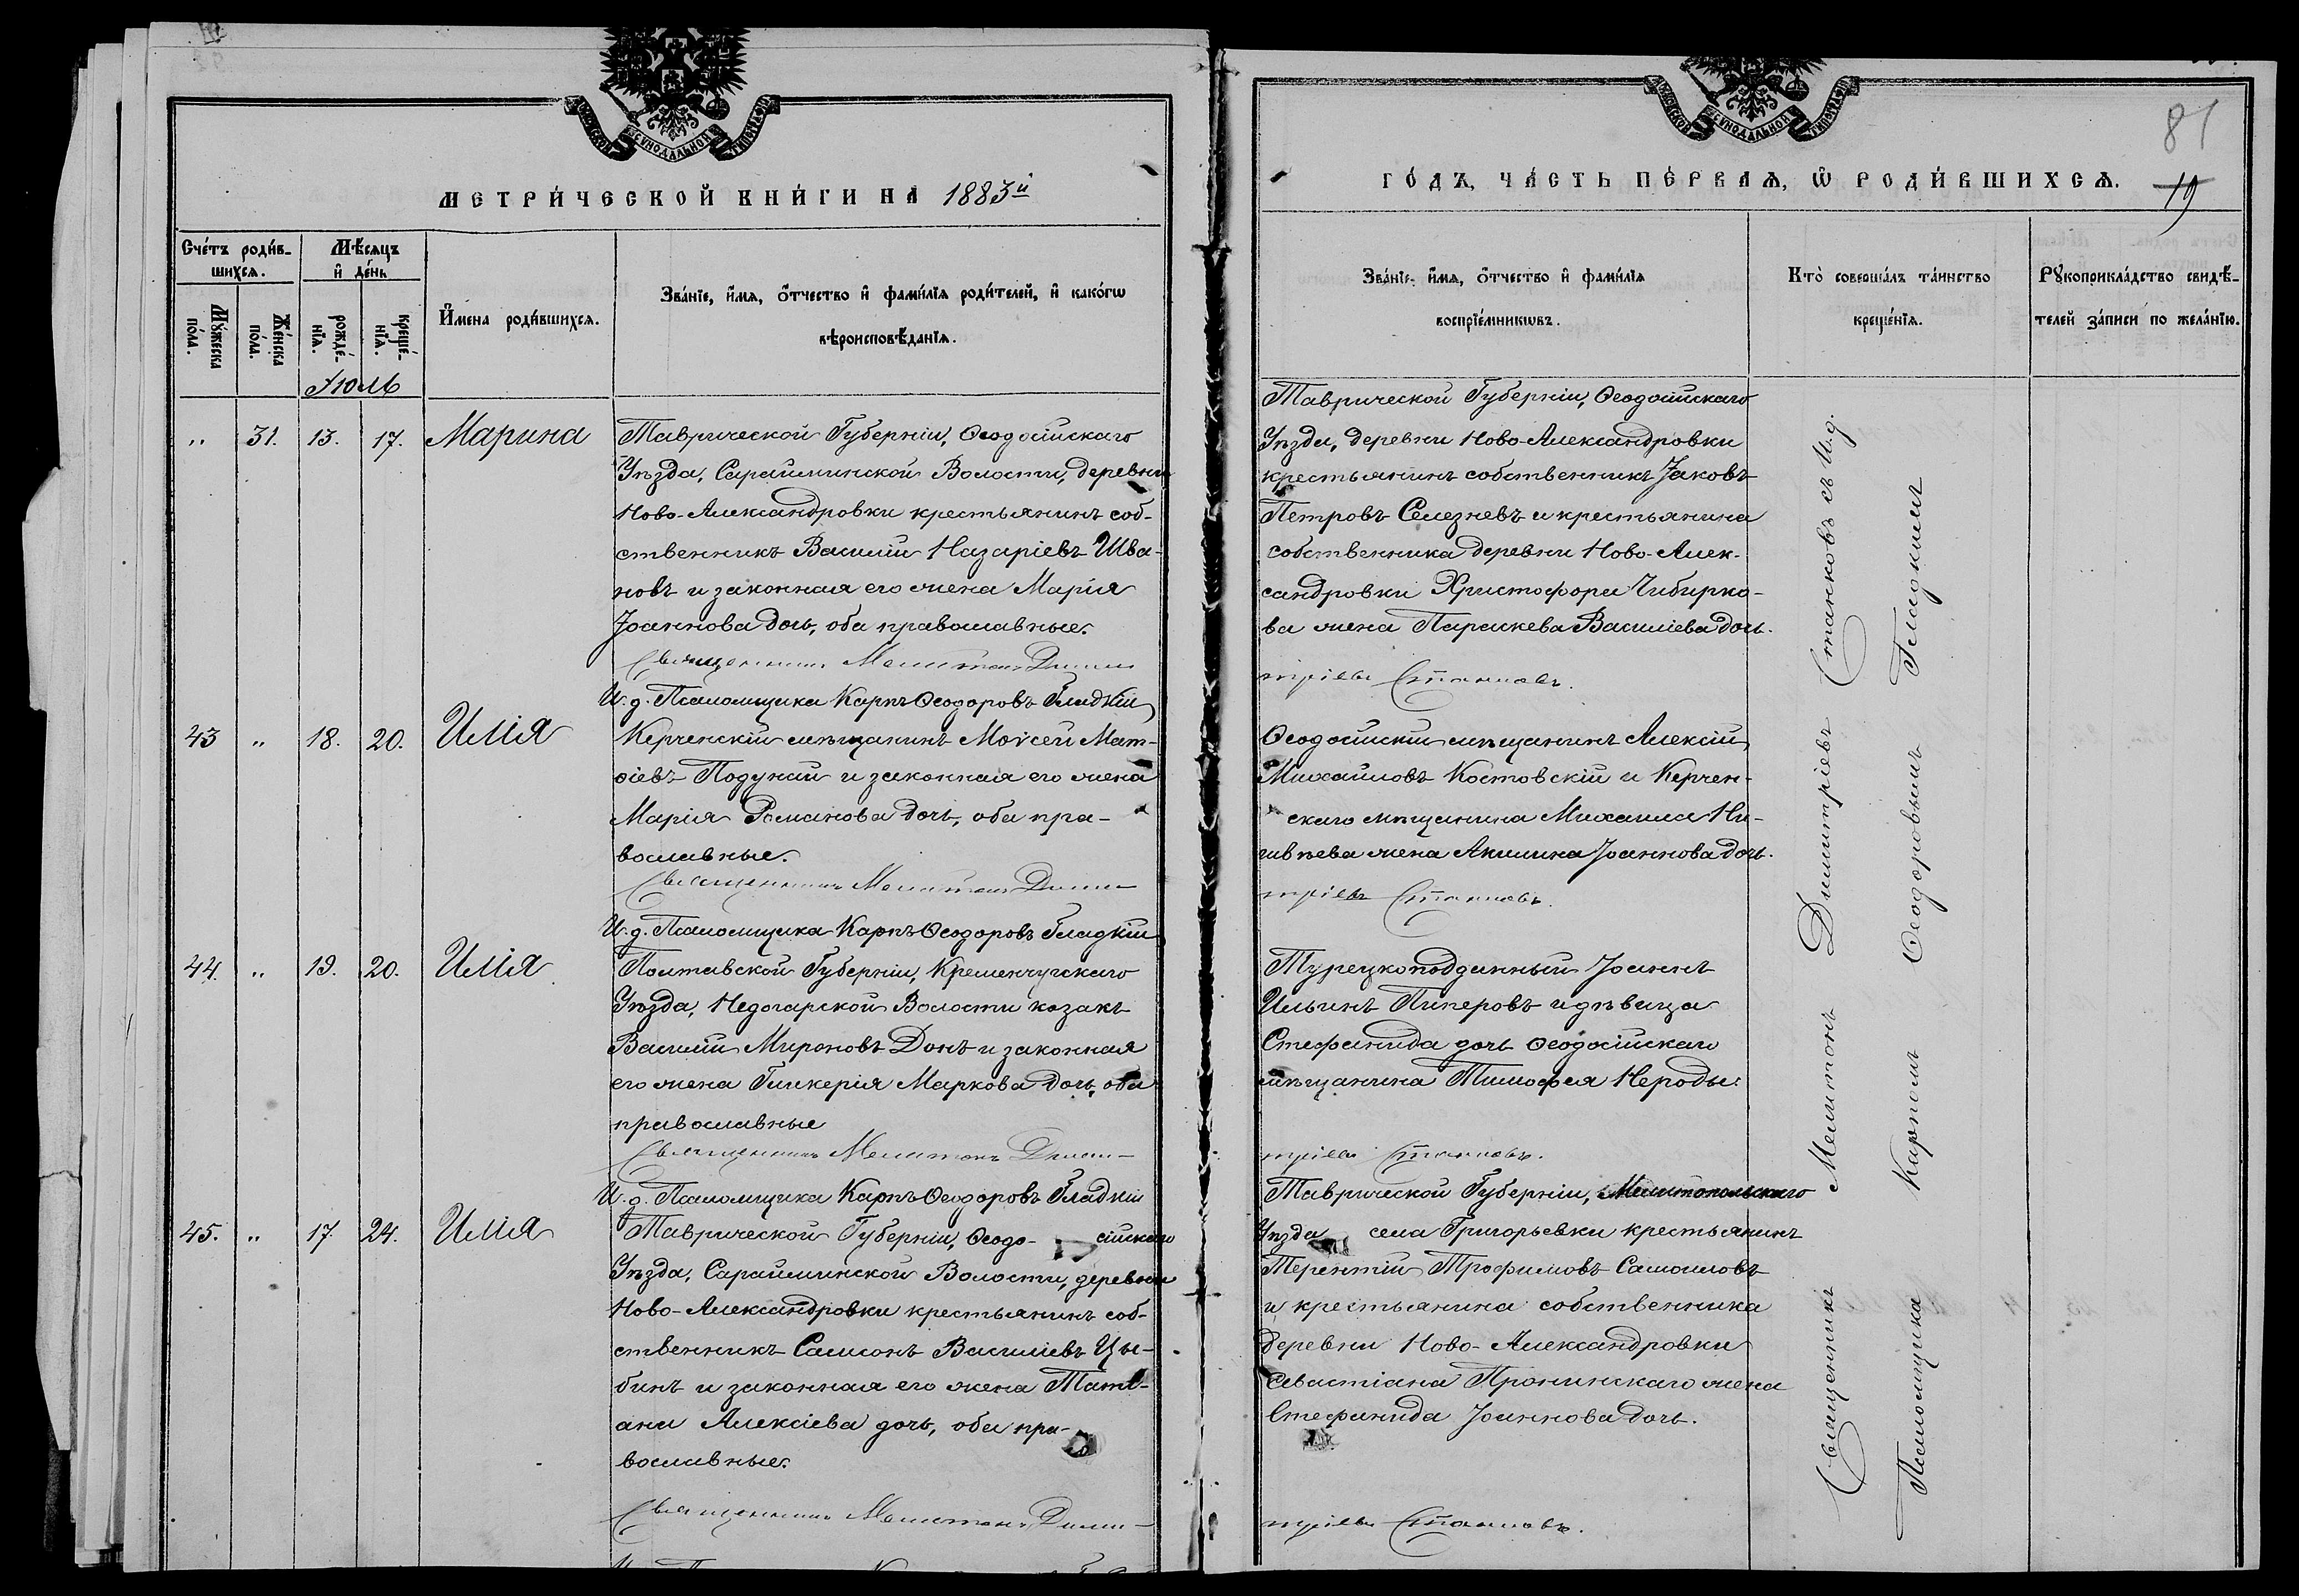 МЕТРИ́ЧЕСКОЙ КНИ́ГИ НА 1883й
Счéтъ роди́в-
шихся.
Мѣ́сяцъ
и҆ де́нь
Мꙋ́жеска
по́ла.
Же́нска
по́ла.
рожде́-
нїя.
креще́-
нїя.
И҆мена роди́вшихся.
Зва́нїе, и҆́мя, ѻ҆́тчество и҆ фами́лїя роди́телей, и҆ како́гѡ
вѣроисповѣ́данїя.
Іюль
„ 31. 13. 17. Марина
Таврической Губерніи, Ѳеодосійскаго
Уѣзда, Сарайминской Волости, деревни
Ново-Александровки крестьянинъ соб-
ственникъ Василій Назаріевъ Ива-
новъ и законная его жена Марія
Іоаннова дочь, оба православные.
Священникъ Мелитонъ Дими
И. д. Псаломщика Карпъ Ѳеодоровъ Гладкій
43 „ 18. 20. Илія
Керченскій мѣщанинъ Моѵсей Мат-
ѳіевъ Подунай и законная его жена
Марія Романова дочь, оба пра-
вославные.
Священникъ Мелитонъ Дими-
И. д. Псаломщика Карпъ Ѳеодоровъ Гладкій
44. „ 19. 20. Илія
Полтавской Губерніи, Кременчугскаго
Уѣзда, Недогарской Волости козакъ
Василій Мироновъ Донъ и законная
его жена Гликерія Маркова дочь, оба
православные
Священникъ Мелитонъ Дими-
И. д. Псаломщика Карпъ Ѳеодоровъ Гладкій
45. „ 17. 24. Илія
Таврической Губерніи, Ѳеодо- сійскаго
Уѣзда, Сарайминской Волости, деревни
Ново-Александровки крестьянинъ соб-
ственникъ Самсонъ Василіевъ Цы-
бинъ и законная его жена Тать-
ана Алексіева дочь, оба пра-
вославные.
Священникъ Мелитонъ Дими-
81
ГО́ДЪ, ЧА́СТЬ ПЕ́РВАЯ, Ѽ РОДИ́ВШИХСЯ. 19
Зва́нїе, и҆́мя, ѻ҆́тчество и҆ фами́лїя
воспрїе́мникѡвъ.
Кто̀ соверша́лъ та́инство
креще́нїя.
Рꙋкоприкла́дство свидѣ́-
телей за́писи по жела́нїю.
Таврической Губерніи, Ѳеодосійскаго
Уѣзда, деревни Ново-Александровки
крестьянинъ собственникъ Іаковъ
Петровъ Селезневъ и крестьянина
собственника деревни Ново-Алек-
сандровки Христофора Чибирко-
ва жена Параскева Василіева дочь.
тріевъ Станковъ.
Ѳеодосійскій мѣщанинъ Алексій
Михаиловъ Костовскій и Керчен-
скаго мѣщанина Михаила Ни-
жена Акилина Іоаннова дочь.
тріевъ Станковъ.
Турецкоподданный Іоаннъ
Ильинъ Пиперовъ и дѣвица
Стефанида дочь Ѳеодосійскаго
мѣщанина Тимофея Нероды.
тріевъ Станковъ.
Таврической Губерніи, Мелитопольскаго
Уѣзда села Григорьевки крестьянинъ
Терентій Трофимовъ Самоиловъ
и крестьянина собственника
деревни Ново-Александровки
Севастіана Пронинскаго жена
Стефанида Іоаннова дочь.
тріевъ Станковъ.
Священникъ Мелитонъ Димитріевъ Станковъ съ И.д.
Псаломщика Карпомъ Ѳеодоровымъ Гладкимъ